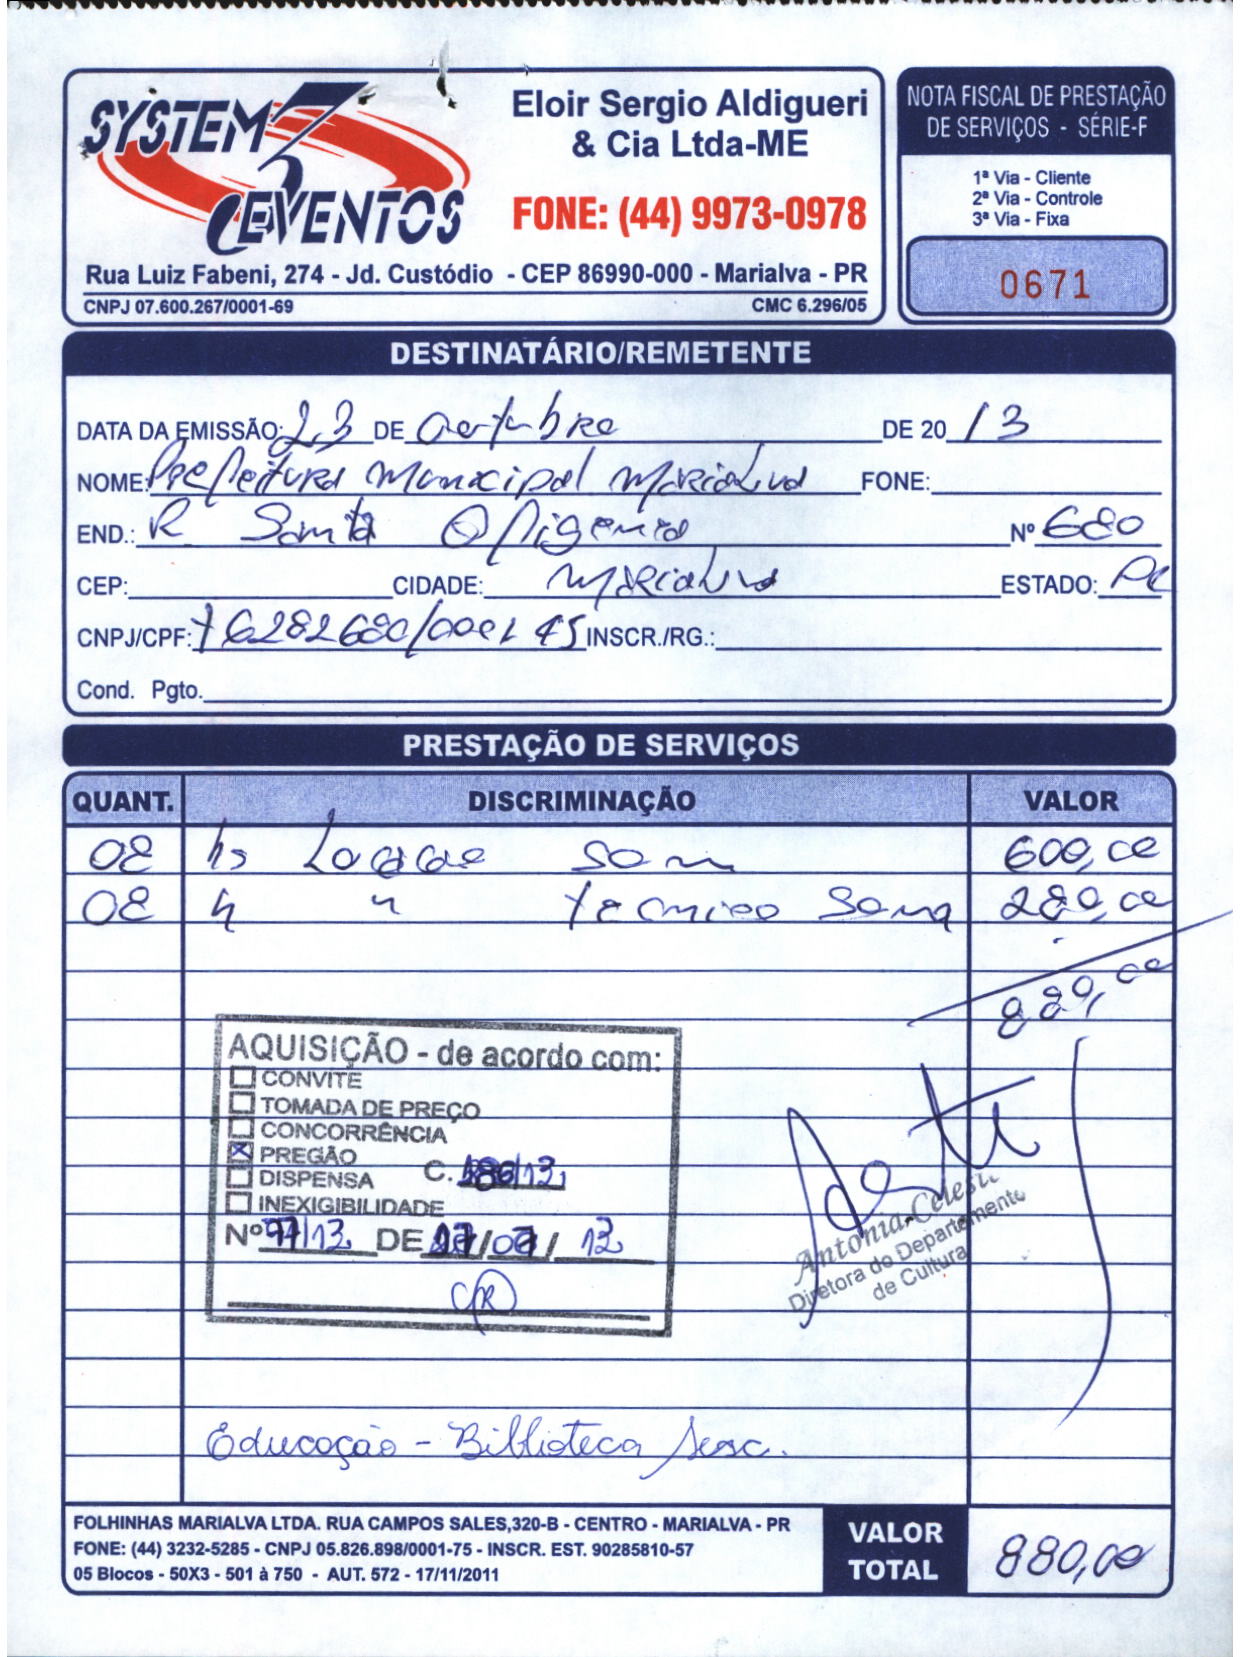 SYSTEM3 EVENTOS
Eloir Sergio Aldigueri
& Cia Ltda-ME
FONE: (44) 9973-0978
Rua Luiz Fabeni, 274 - Jd. Custódio - CEP 86990-000 - Marialva - PR
CNPJ 07.600.267/0001-69 CMC 6.296/05
NOTA FISCAL DE PRESTAÇÃO
DE SERVIÇOS - SÉRIE-F
1ª Via - Cliente
2ª Via - Controle
3ª Via - Fixa
0671
DESTINATÁRIO/REMETENTE
DATA DA EMISSÃO: 23 DE outubro DE 20 13
NOME: Prefeitura Municipal Marialva FONE:
END.: R Santa Efigenia Nº 680
CEP: CIDADE: Marialva ESTADO: PR
CNPJ/CPF: 76282680/0001 45 INSCR./RG.:
Cond. Pgto.
PRESTAÇÃO DE SERVIÇOS
QUANT. DISCRIMINAÇÃO VALOR
08 hs Locacao som 600,00
08 " " tecnico som 280,00
880,00
AQUISIÇÃO - de acordo com:
CONVITE
TOMADA DE PREÇO
CONCORRÊNCIA
PREGÃO
DISPENSA C. /13
INEXIGIBILIDADE
Nº 77/13 DE /07/ 13
Antonia Celest
Diretora do Departamento
de Cultura
Educação - Biblioteca Sesc.
FOLHINHAS MARIALVA LTDA. RUA CAMPOS SALES,320-B - CENTRO - MARIALVA - PR
FONE: (44) 3232-5285 - CNPJ 05.826.898/0001-75 - INSCR. EST. 90285810-57
05 Blocos - 50X3 - 501 à 750 - AUT. 572 - 17/11/2011
VALOR
TOTAL 880,00